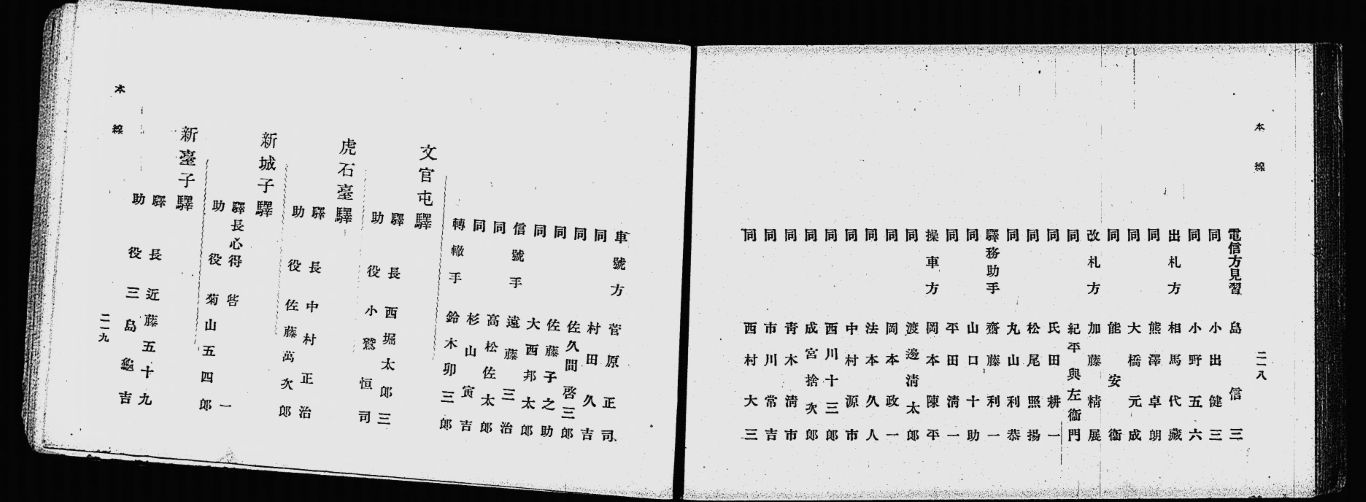 本線
二一八
電信方見習 島信三
同 小出健三
同 小野五六
出札方 相馬代藏
同 熊澤卓朗
同 大橋元成
同 能安衞
改札方 加藤精展
同 紀平與左衞門
同 氏田耕一
同 松尾照揚
同 丸山利恭
驛務助手 齋藤利一
同 山口十助
同 平田淸一
操車方 岡本陳平
同 渡邊淸太郎
同 岡本政一
同 法本久人
同 中村源市
同 西川十三郎
同 成宮捨次郎
同 靑木淸市
同 市川常吉
同 西村大三
車號方 菅原正司
同 村田久吉
同 佐久間啓三郎
同 佐藤子之助
同 大西邦太郎
信號手 遠藤三治
同 高松佐太郎
同 杉山寅吉
轉轍手 鈴木卯三郎
文官屯驛
驛長 西堀太郎三
助役 小鷲恒司
虎石臺驛
驛長 中村正治
助役 佐藤萬次郎
新城子驛
驛長心得 呰一
助役 菊山五四郎
新臺子驛
驛長 近藤五十九
助役 三島龜吉
本線
二一九